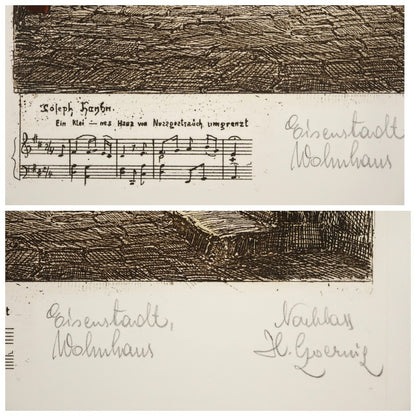 Joseph Haydn.
Ein klei – nes Haus von Nussgesträuch umgrenzt
Eisenstadt
Wohnhaus
Eisenstadt,
Wohnhaus
Nachlass
H. Goering